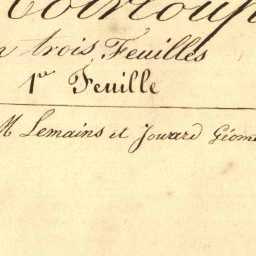 n trois Feuilles
1re Feuille
M Lemains et Jouard Géom